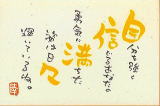 自分を強く
信じるあなたの
勇気に満ちた
姿は日々
輝いている